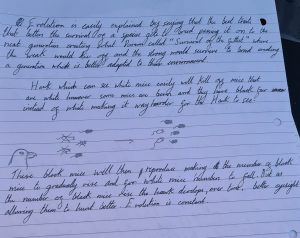 Evolution is easily explained by saying that the best traits
that better the survival of a species gets passed on to the
next generation creating what Darwin called "Survival of the fittest" where
the weak would die and the strong would survive to breed making
a generation which is better adapted to their environment.
Hawk which can see white mice easily will kill off mice that
are white however some mice are born and they have black fur
instead of white making it way harder for the Hawk to see.
These black mice will then reproduce making the number of black
mice to gradually rise and for white mice number to fall. But as
the number of black mice rise the hawk develops, over time, better eyesight
allowing them to hunt better. Evolution is constant.